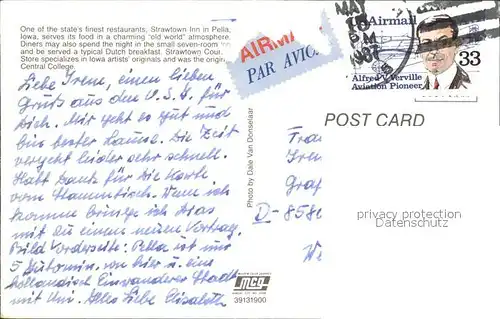 One of the state's finest restaurants, Strawtown Inn in Pella,
Iowa, serves its food in a charming "old world" atmosphere.
Diners may also spend the night in the small seven-room
and be served a typical Dutch breakfast. Strawtown Cour
Store specializes in Iowa artists' originals and was the origina
Central College.
Liebe Irene, einen lieben
Gruß aus den U.S.A. für
Dich. Mir geht es gut und
bin bester Laune. Die Zeit
vergeht leider sehr schnell.
Hab Dank für die Karte
vom Stammtisch. Wenn ich
komme bringe ich Dias
mit zu einem neuen Vortrag.
Bild Vorderseite: Pella ist nur
5 Automin. von hier u. eine
holländisch Einwanderer Stadt
mit Uni. Alles Liebe Elisabeth
PAR AVION
Photo by Dale Van Donselaar
mcg
39131900
MAY
PM
1987
Airmail
33
Alfred Verville
Aviation Pioneer
POST CARD
D-858
privacy protection
Datenschutz